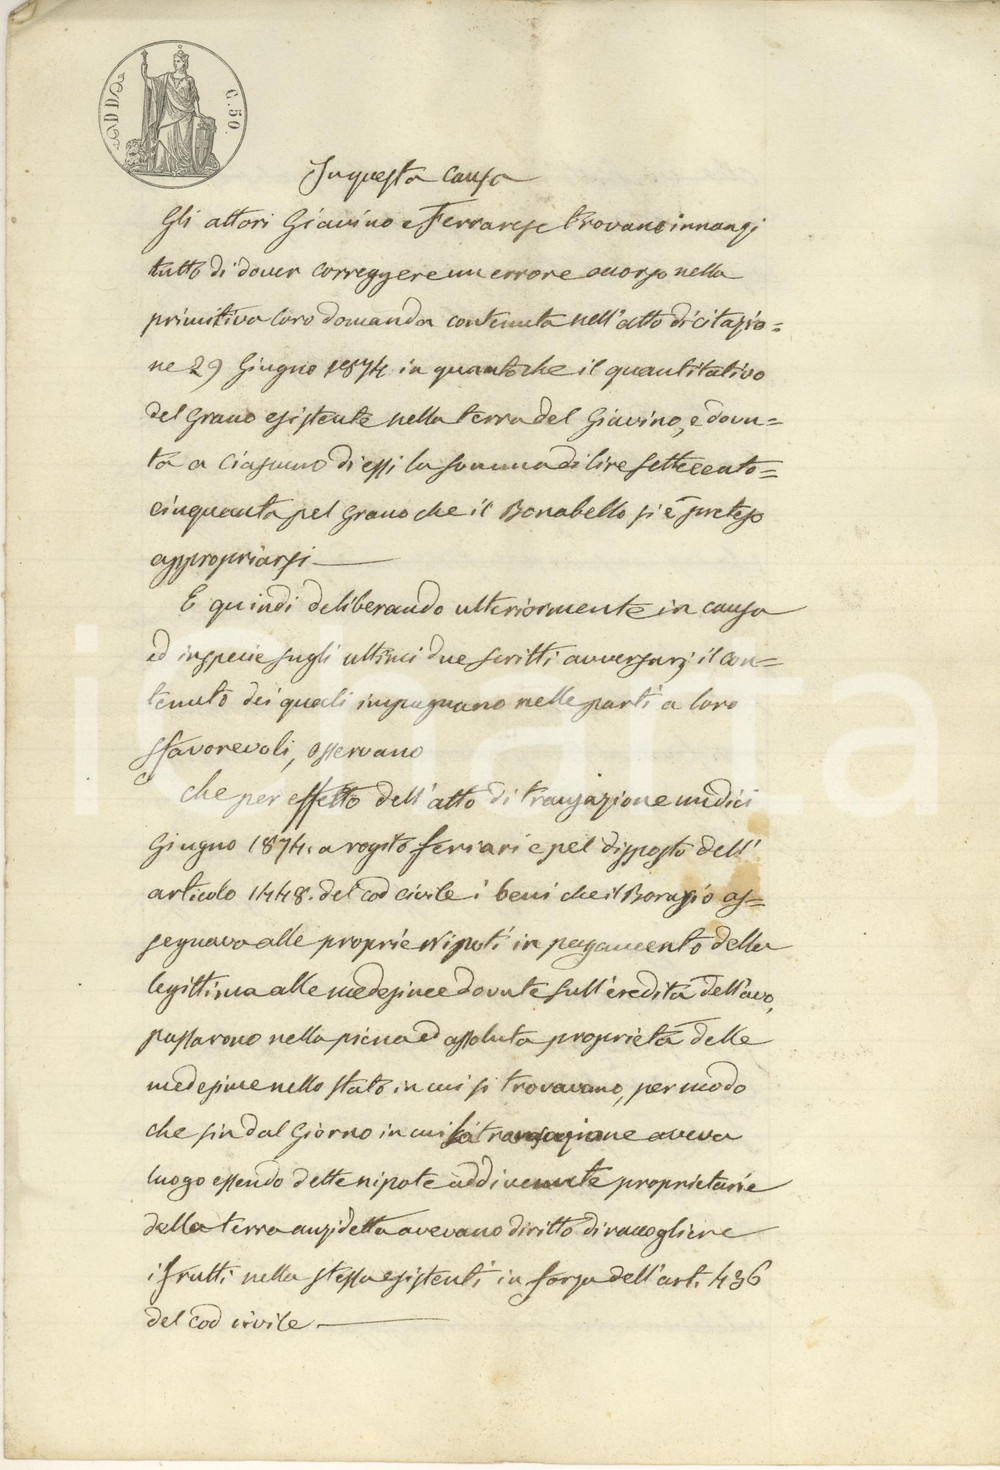 C. 50.
In questa causa
Gli attori Giavino e Ferrarese trovano innanzi
tutto di dover correggere un errore occorso nella
primitiva loro domanda contenuta nell'atto di citazio=
ne 29 Giugno 1874 in quantoche il quantitativo
del grano esistente nella terra del Giavino, è dovu=
ta a ciascuno di essi la somma di lire settecento=
cinquanta pel grano che il Bonabello si è preteso
appropriarsi
E quindi deliberando ulteriormente in causa
ed in specie sugli ultimi due scritti avversarj il con=
tenuto dei quali impugnano nelle parti a loro
sfavorevoli, osservano
che per effetto dell'atto di transazione undici
Giugno 1874. a rogito Ferrari e pel disposto dell'
articolo 1448. del cod civile i beni che il Borasio as=
segnava alle proprie Nipoti in pagamento della
legittima alle medesime dovute sull'eredità dell'avo,
passarono nella piena ed assoluta proprietà delle
medesime nello stato in cui si trovavano, per modo
che sin dal Giorno in cui la transazione aveva
luogo essendo dette nipote addivenute proprietarie
della terra anzidetta avevano diritto di raccogliere
i frutti nella stessa esistenti in forza dell'art. 436
del cod civile